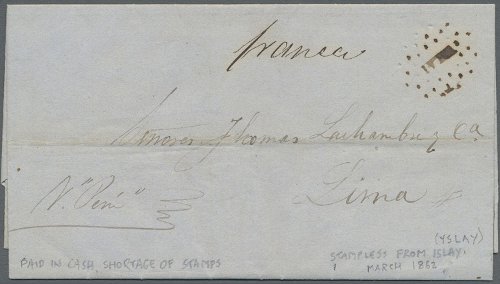 franca
Señores Thomas Lachambre y Ca
Lima
V. "Perú"
(YSLAY)
PAID IN CASH SHORTAGE OF STAMPS
STAMPLESS FROM ISLAY.
MARCH 1862